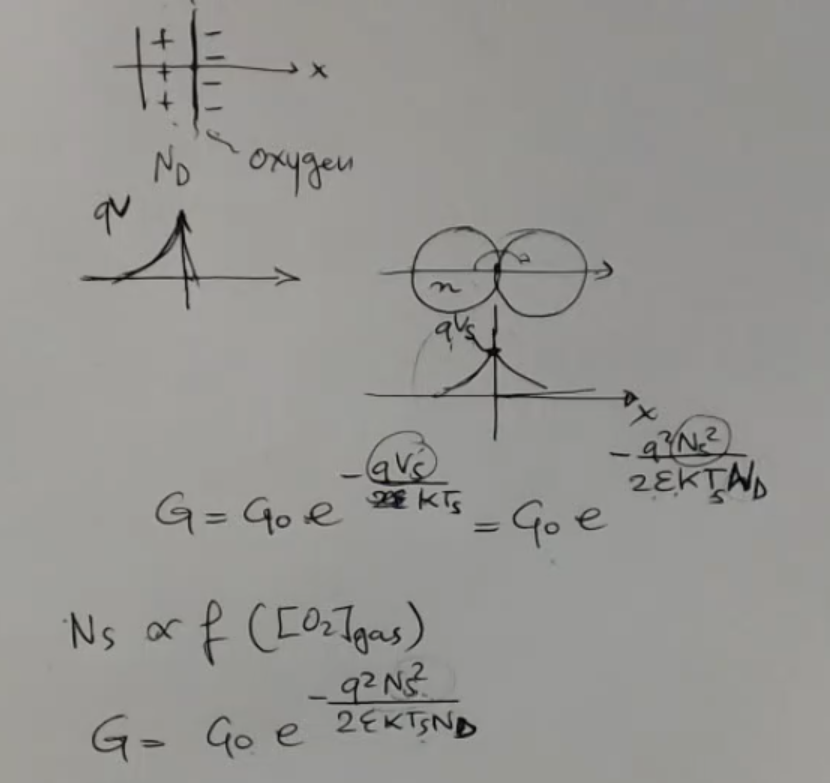 + −
+ − x
+ −
−
N_D oxygen
qV
n
qV_s
x
G = G₀ e^{-qV_s / KT_s} = G₀ e^{-q²N_s² / 2εKT_sN_D}
N_s ∝ f ([O₂]gas)
G = G₀ e^{-q²N_s² / 2εKT_sN_D}